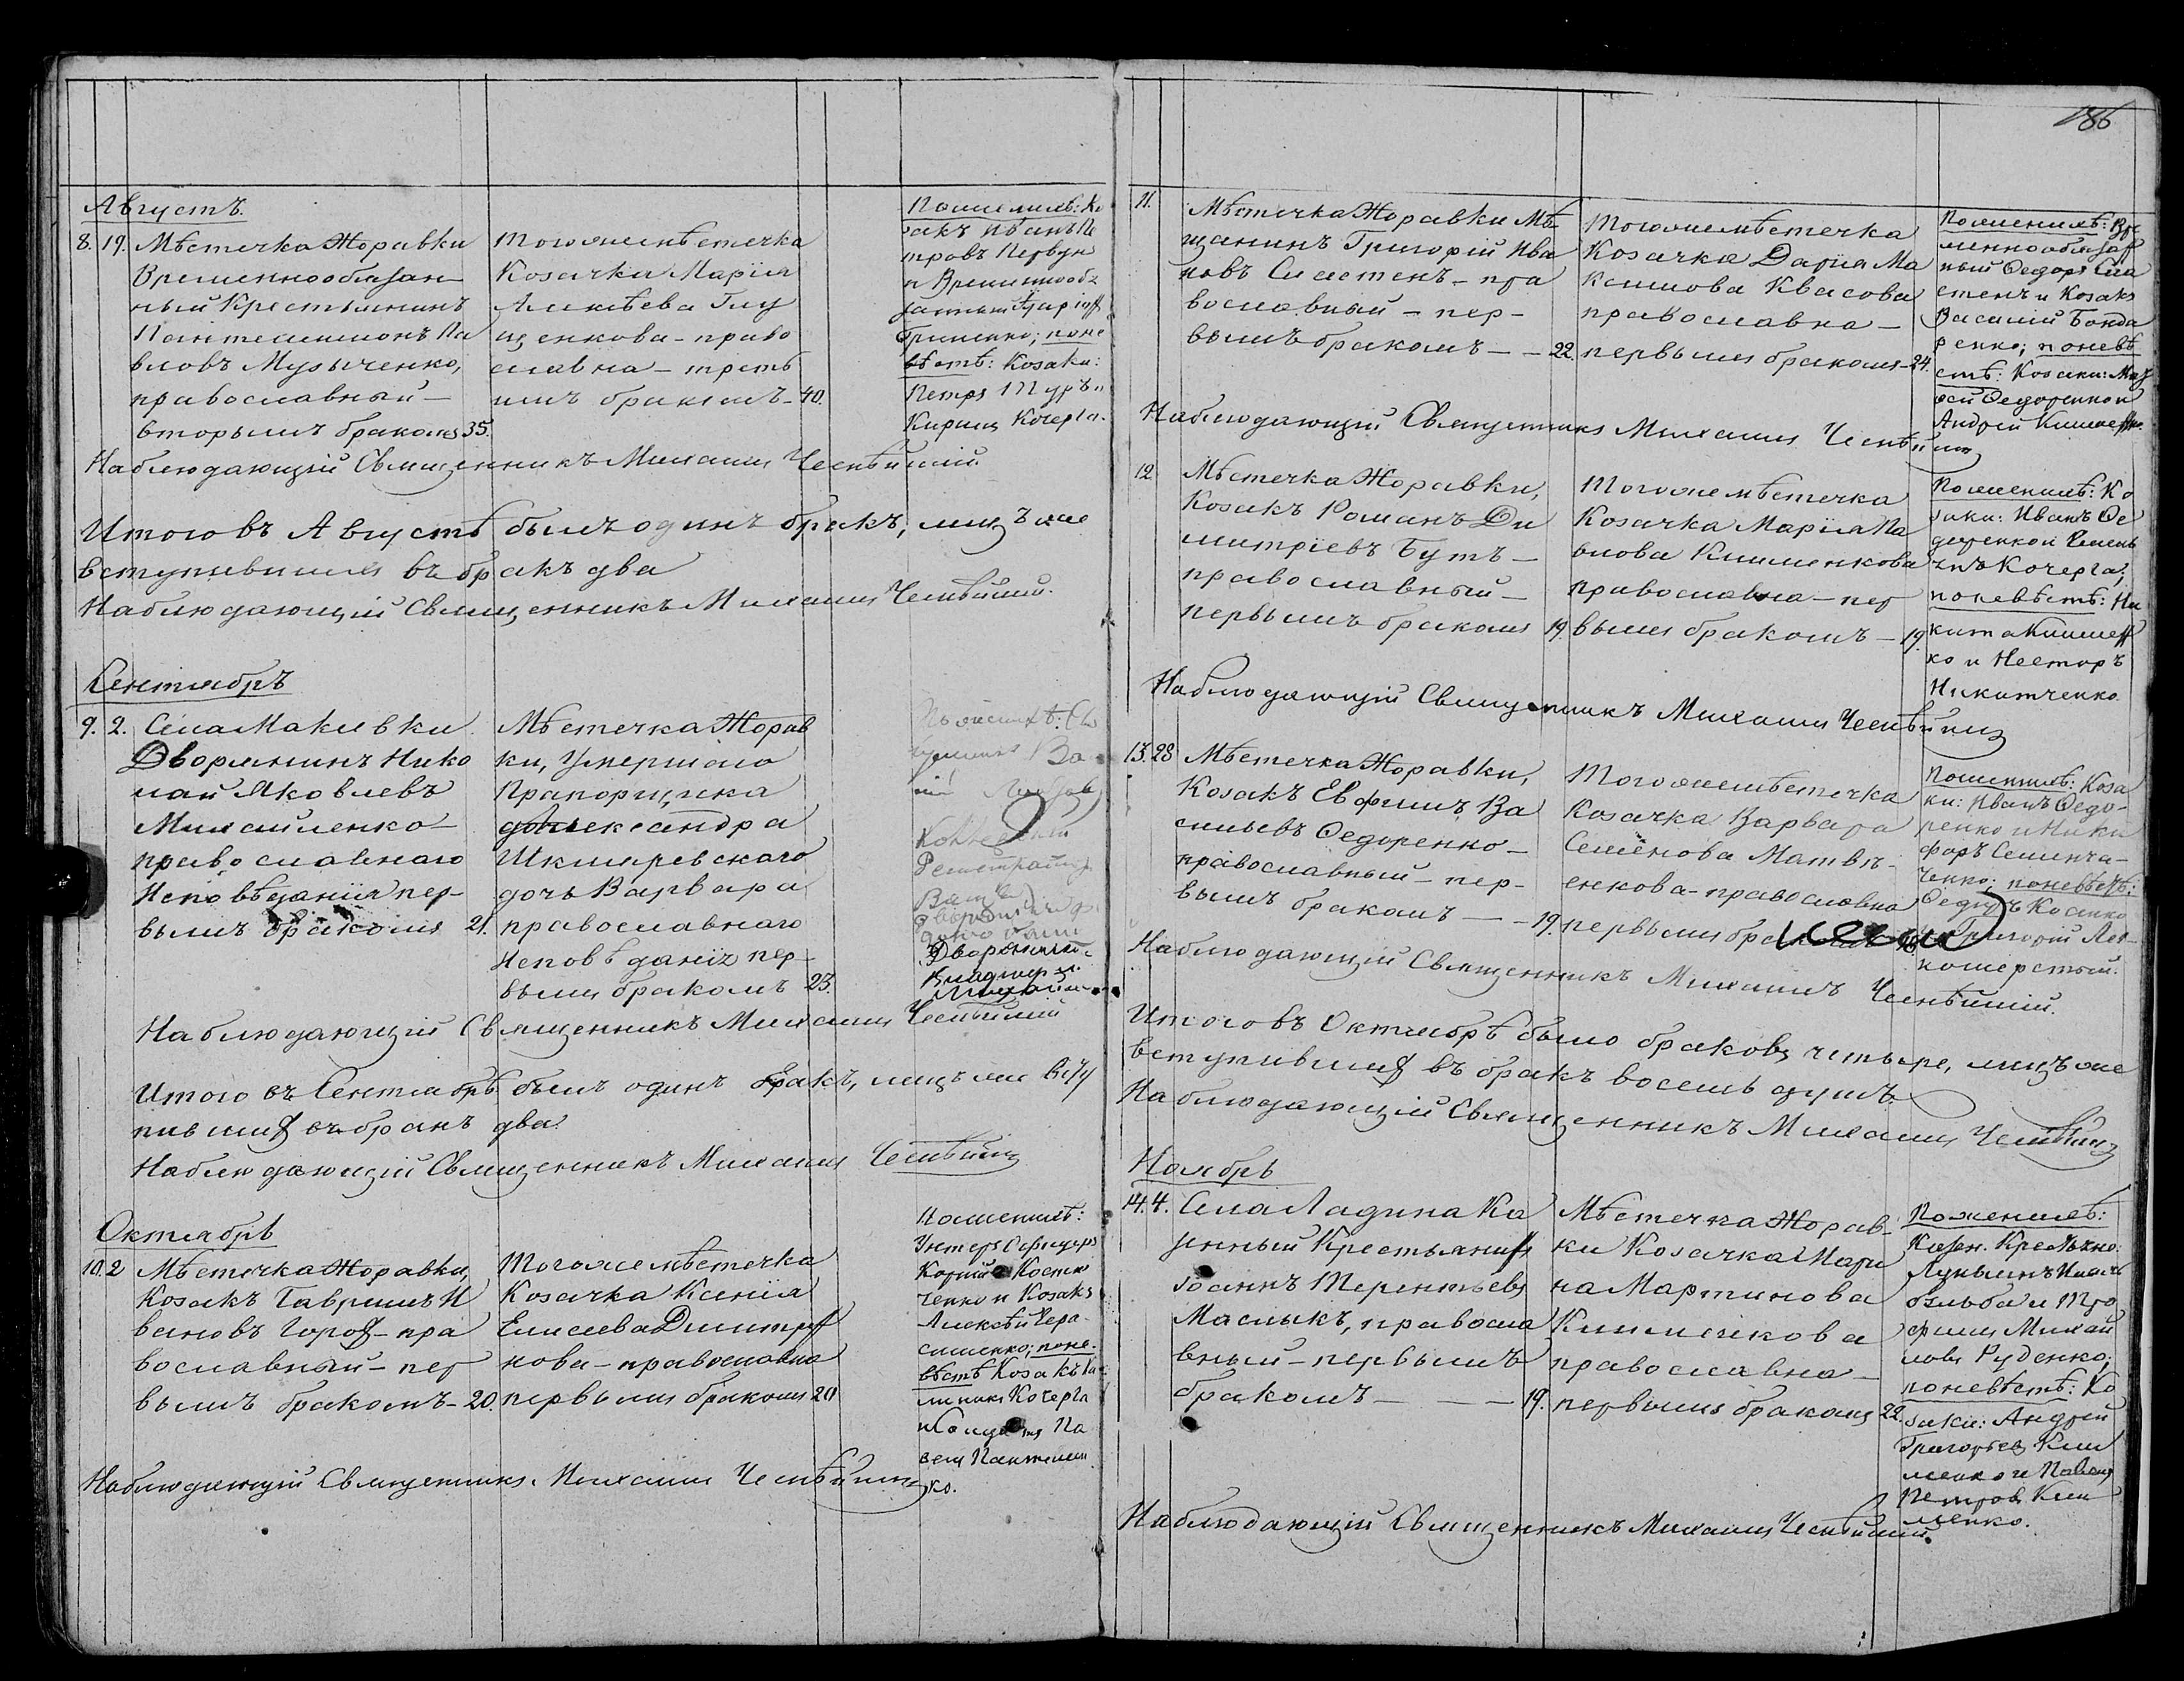 Августъ.
8. 19. Мѣстечка Жоравки
Временнообязан-
ный Крестьянинъ
Пантелеимонъ Па
вловъ Музыченко,
православный —
вторымъ бракомъ 35.
тогоже мѣстечка
Козачка Марія
Алексѣева Гли
щенкова - право
славна - треть
имъ бракомъ - 40.
Поженихѣ: Ко
закъ Иванъ Пе
тровъ Первун
и Временнооб
Гриненко; поне
вѣстѣ: Козаки:
Петръ
Кирилъ Кочерга.
Наблюдающій Священникъ Михаилъ
Итого въ Августѣ былъ одинъ бракъ, лицъ же
вступившихъ въ бракъ два
Наблюдающій Священникъ Михаилъ
Сентябрь
9. 2. Села Макѣевки
Дворянинъ Нико
лай Яковлевъ
Михайленко —
православнаго
Исповѣданія пер-
вымъ бракомъ 21.
Мѣстечка Жорав
ки, Умершаго
Прапорщика
Александра
Шкляревскаго
дочь Варвара
православнаго
Исповѣданія пер-
вымъ бракомъ 23.
Поженихѣ:
Дворянинъ
Владимiръ
Наблюдающій Священникъ Михаилъ
Итого въ Сентябрѣ былъ одинъ бракъ, лицъ же всту
пившихъ въ бракъ два.
Наблюдающій Священникъ Михаилъ
Октябрь
10. 2 Мѣстечка Жоравки,
Козакъ Гавріилъ И
вановъ Горох - пра
вославный - пер
вымъ бракомъ - 20.
Тогоже мѣстечка
Козачка Ксенія
Елисеева Димитрен
кова - православна
первымъ бракомъ 20
Поженихѣ:
Унтеръ Офицеръ
Корній Костю
ченко и Козакъ
Алексѣй Гера-
сименко; поне-
вѣстѣ Козакъ
Кочерга
и Солдатъ Па
велъ Пантелеен
ко.
Наблюдающій Священникъ Михаилъ
186
11. Мѣстечка Жоравки Мѣ-
щанинъ Григорій Ива
новъ Сластенъ - пра
вославный - пер-
вымъ бракомъ — 22.
Тогоже мѣстечка
Козачка Дарія Ма
ксимова Квасова
православна —
первымъ бракомъ - 24.
Поженихѣ: Вре
меннообязан
ный Федоръ Сла
стенъ и Козакъ
Василій Бонда
ренко; поневѣ
стѣ: Козаки:
Федоренко и
Андрей Клименко.
Наблюдающій Священникъ Михаилъ
12 Мѣстечка Жоравки,
Козакъ Романъ Ди
митріевъ Бутъ —
православный —
первымъ бракомъ 19
Тогоже мѣстечка
Козачка Марія Па
влова Клименкова
православна - пер
вымъ бракомъ - 19.
Поженихѣ: Ко
заки: Иванъ Фе
доренко и
Кочерга;
поневѣстѣ: Ни
кита Климен
ко и Несторъ
Никитченко.
Наблюдающій Священникъ Михаилъ
13. 28 Мѣстечка Жоравки,
Козакъ Евфимъ Ва
сильевъ Федоренко —
православный - пер-
вымъ бракомъ — 19.
Тогоже мѣстечка
Козачка Варвара
Семенова Матвѣ-
енкова - православна
первымъ бракомъ
Поженихѣ: Коза
ки: Иванъ Федо-
ренко и Ники
форъ
ченко; поневѣстѣ:
Григорій
Наблюдающій Священникъ Михаилъ
Итого въ Октябрѣ было браковъ четыре, лицъ же
вступившихъ въ бракъ восемь душъ.
Наблюдающій Священникъ Михаилъ
Ноябрь
14. 4. Села Ладина Ка
зенный Крестьянинъ
Іоаннъ Терентьевъ
Маслыкъ, правосла
вный - первымъ
бракомъ — 19.
Мѣстечка Жорав-
ки Козачка Мари
на Мартинова
Клименкова
православна —
первымъ бракомъ 22.
Поженихѣ:
Казен. Крестьяне:
Лукьянъ
и Тро
фимъ Михай
ловъ Руденко;
поневѣстѣ: Ко
заки: Андрей
Григорьевъ Кли
менко и Павелъ
Петровъ Кли
менко.
Наблюдающій Священникъ Михаилъ